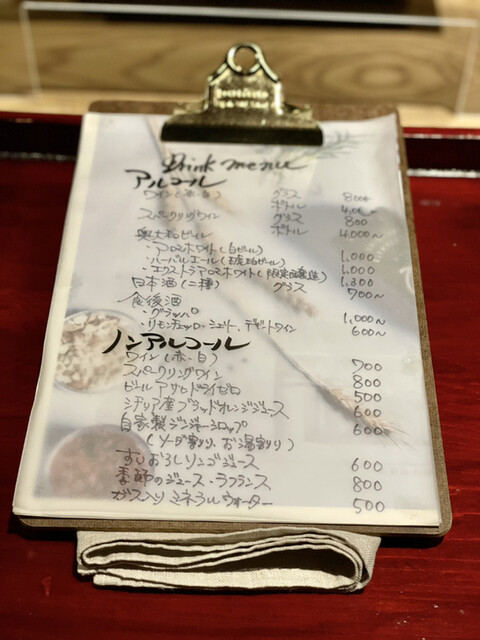 Drink menu
アルコール
ワイン(赤・白) グラス 800
ボトル 4,000~
スパークリングワイン グラス 800
ボトル 4,000~
奥大和ビール
・アロマホワイト(白ビール) 1,000
・ハーバルエール(琥珀ビール) 1,000
・エクストラアロマホワイト(限定醸造) 1,300
日本酒(二種) グラス 700~
食後酒
・グラッパ 1,000~
・リモンチェッロ・シェリー、デザートワイン 600~
ノンアルコール
ワイン(赤・白) 700
スパークリングワイン 800
ビール アサヒドライゼロ 500
シチリア産ブラッドオレンジジュース 600
自家製ジンジャーシロップ 600
(ソーダ割り、お湯割り)
すりおろしリンゴジュース 600
季節のジュース・ラフランス 800
ガス入りミネラルウォーター 500